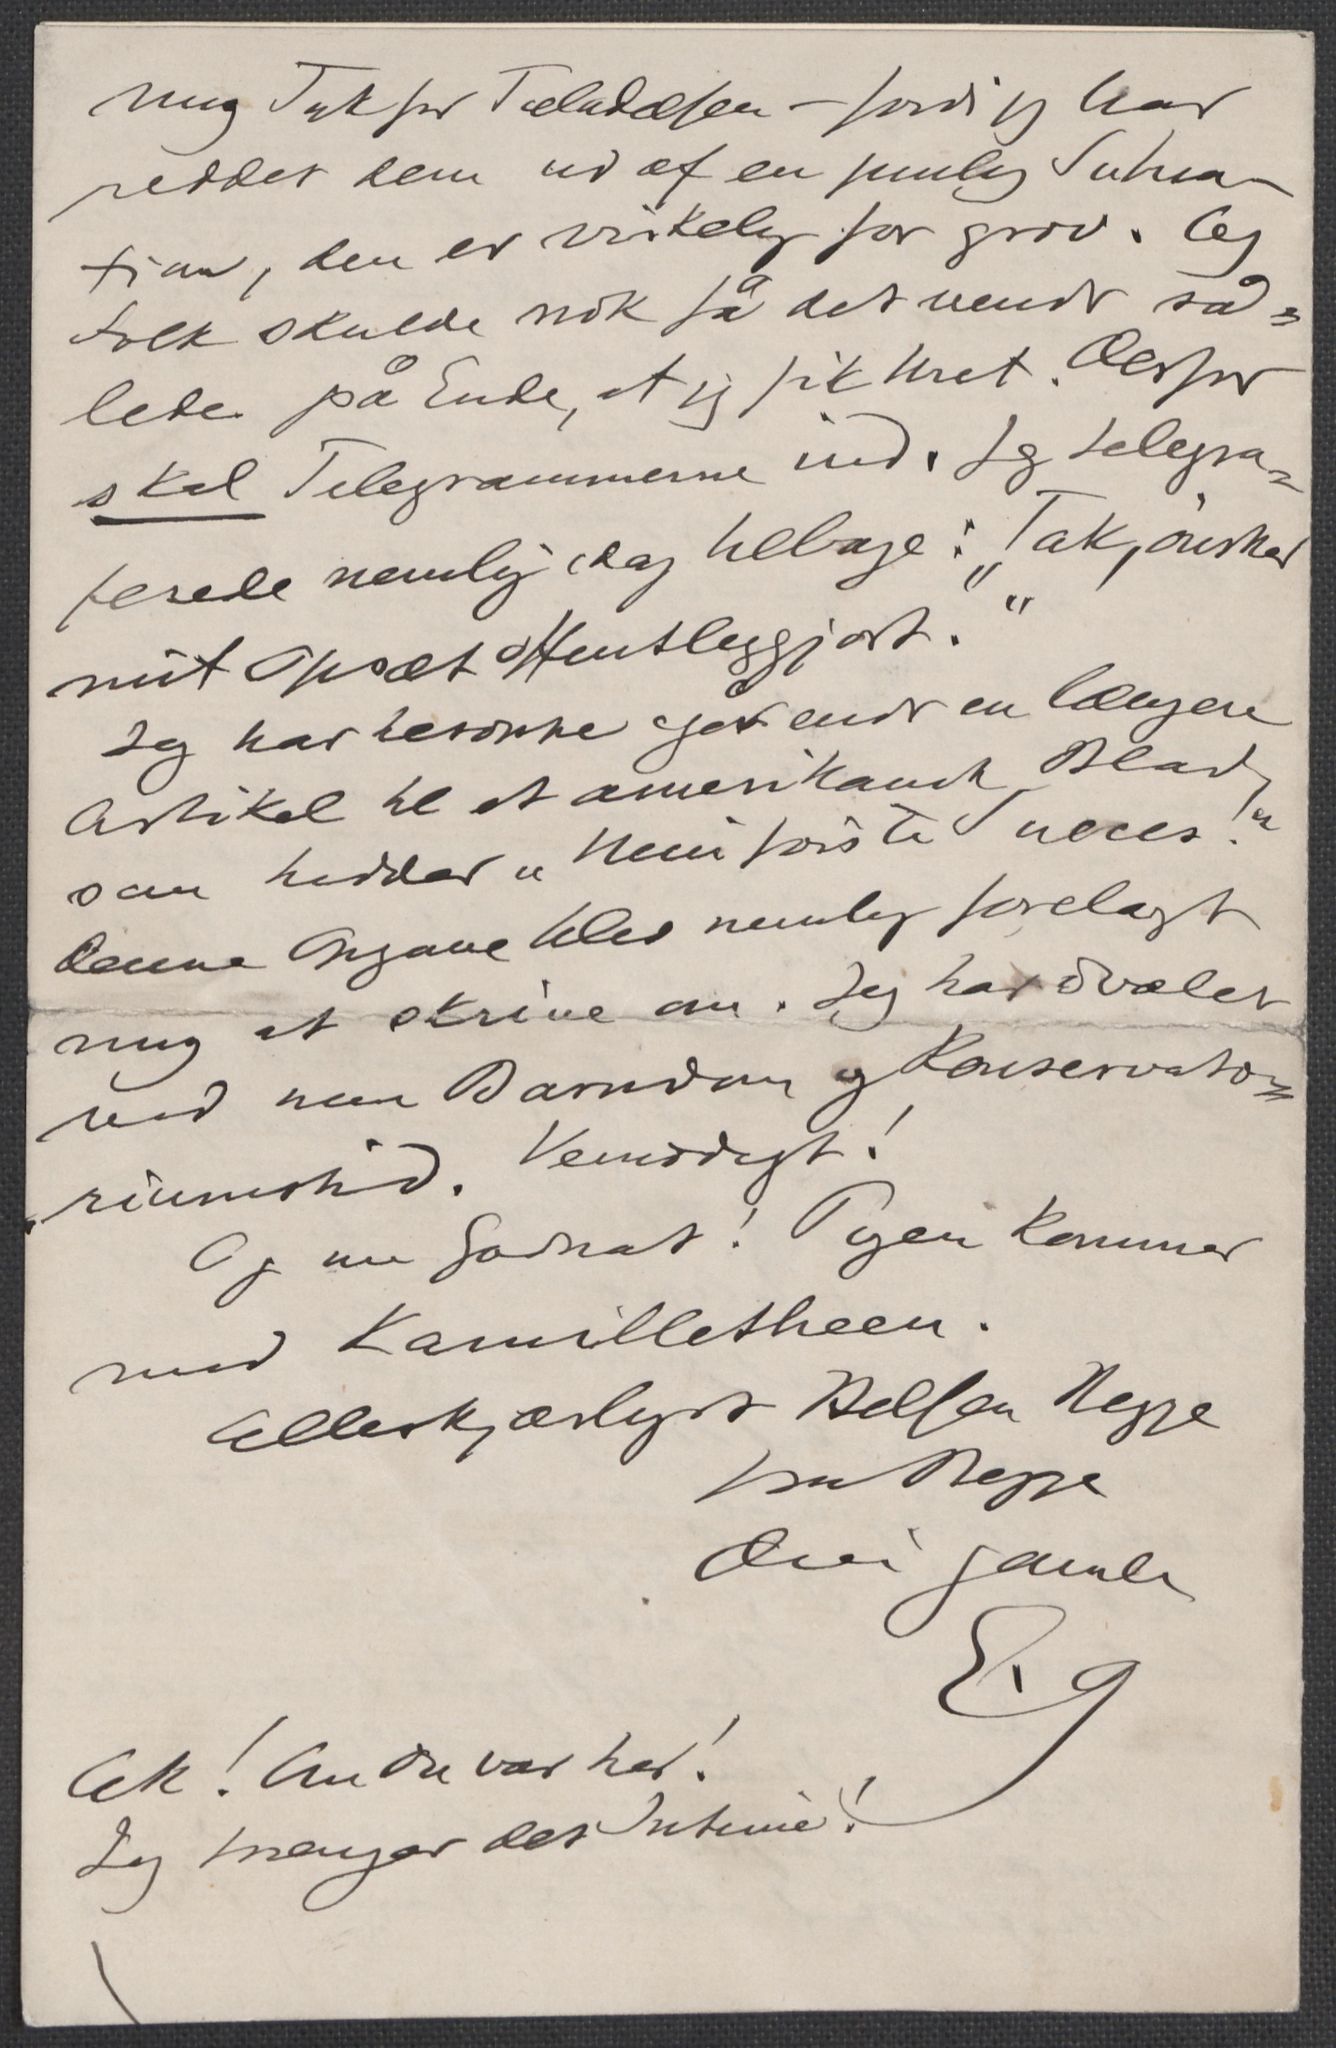 mig Tak for Tieladelsen – fordi jeg har
reddet dem ud af en pinlig Situa-
tion, den er virkelig for grov. Og
folk skulde nok få det vendt så=
ledes på Ende, at jeg fik Uret. Derfor
skal Telegrammerne ind. Jeg telegra=
ferede nemlig idag tilbage: „Tak, önsker
mit Opsæt offentliggjort.“
Jeg har heroppe gjort endt en længere
Artikel til et amerikansk Blad,
som hedder „Mein förste Succes!“
denne Opgave blev nemlig forelagt
mig at skrive om. Jeg har dvælet
ved min Barndom og Konservato=
riumstid. Vemodigt!
Og nu Godnat! Pigen kommer
med Kamilletheen.
Allerkjærligst Hilsen
fra
din gamle
E. G
Ak! Om du var her!
Jeg trænger det Intime!